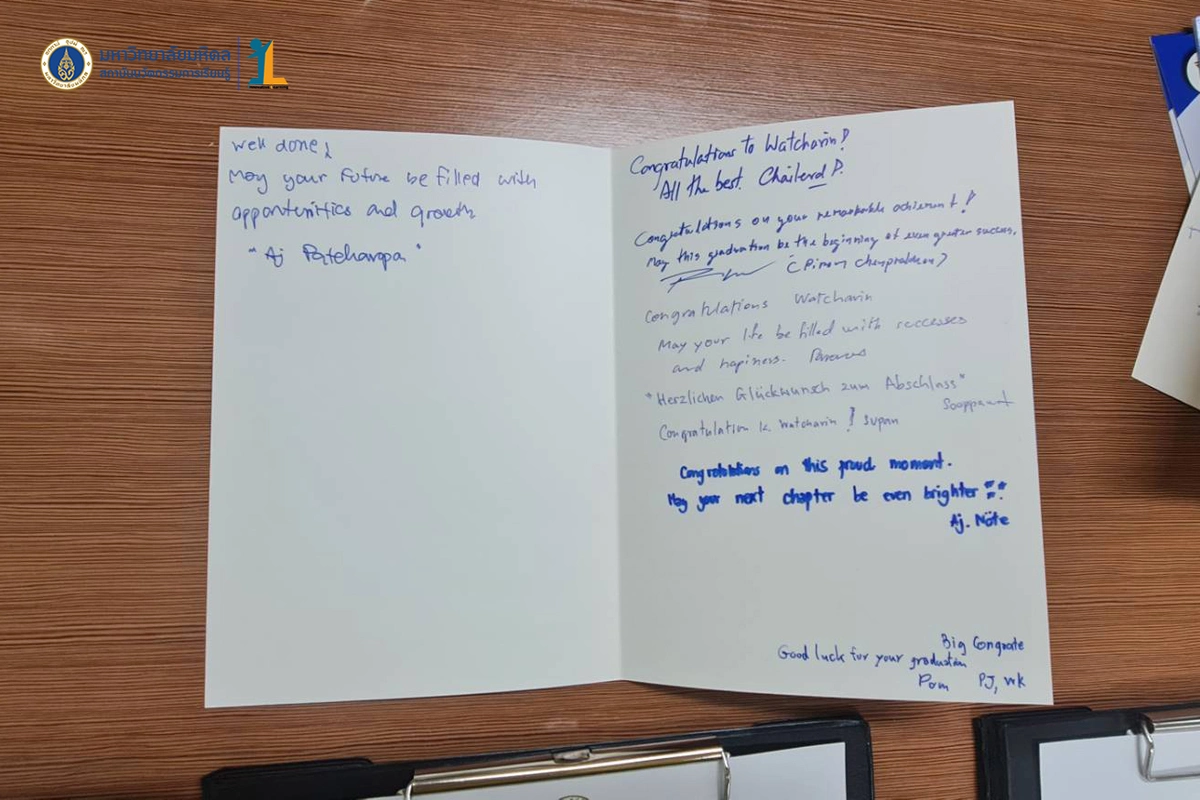 มหาวิทยาลัยมหิดล
สถาบันนวัตกรรมการเรียนรู้
Well done!
May your future be filled with
opportunities and growth
"Aj Patcharapa"
Congratulations to Watcharin!
All the best. Chailerd!
Congratulations on your remarkable achiement!
May this graduation be the beginning of even greater success.
Congratulations Watcharin
May your life be filled with successes
and hapiness.
"Herzlichen Glückwunsch zum Abschlass"
Congratulation k. Watcharin! Supan
Congratulations on this proud moment.
May your next chapter be even brighter
Aj. Note
Big Congrate
Good luck for your graduation
Pom PJ, wk